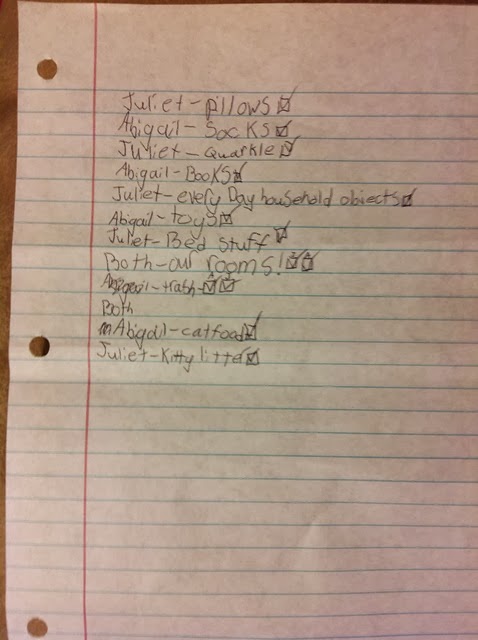 Juliet-pillows ☑
Abigail-Socks ☑
Juliet-Quarkle ☑
Abigail-Books ☑
Juliet-every Day household objects ☑
Abigail-toys ☑
Juliet-Bed stuff ☑
Both-our rooms! ☑ ☑
Abigail-trash-☑ ☑
Both
Abigail-catfood ☑
Juliet-Kitty litter ☑